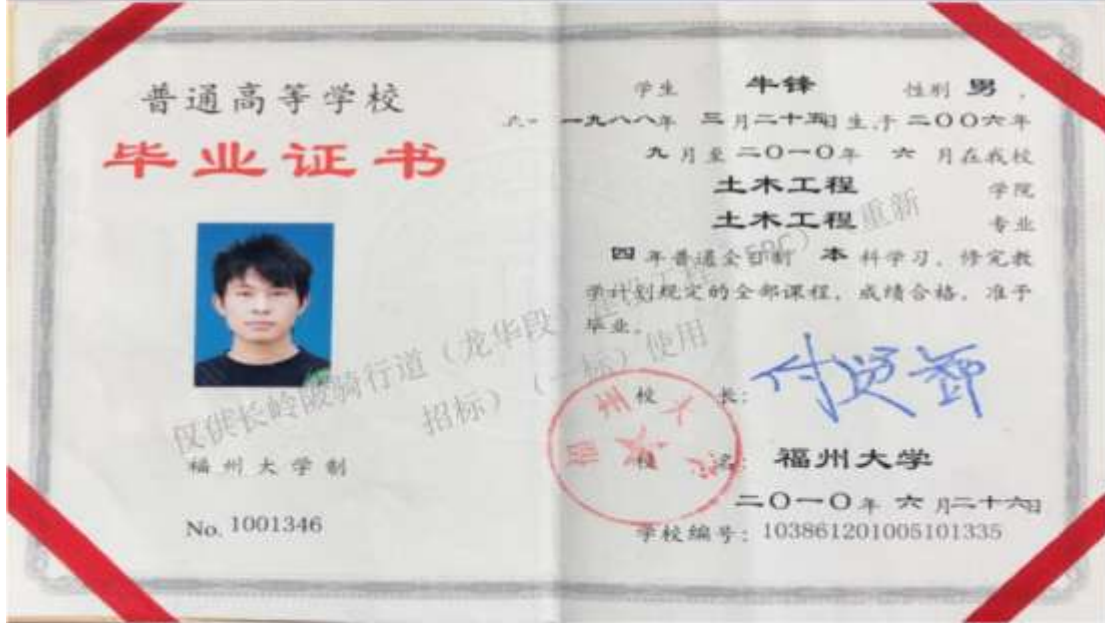 普通高等学校
毕业证书
福州大学制
No. 1001346
学生 牛锋 性别 男，
一九八八年 三月二十五日生，于二〇〇六年
九月至二〇一〇年 六 月在我校
土木工程 学院
土木工程 专业
四 年普通全日制 本 科学习，修完教
学计划规定的全部课程，成绩合格，准予
毕业。
校 长：
付贤智
校 名： 福州大学
二〇一〇年 六 月二十六日
学校编号：103861201005101335
福州大学
仅供长岭陂骑行道（龙华段）
重新
招标）（一标）使用